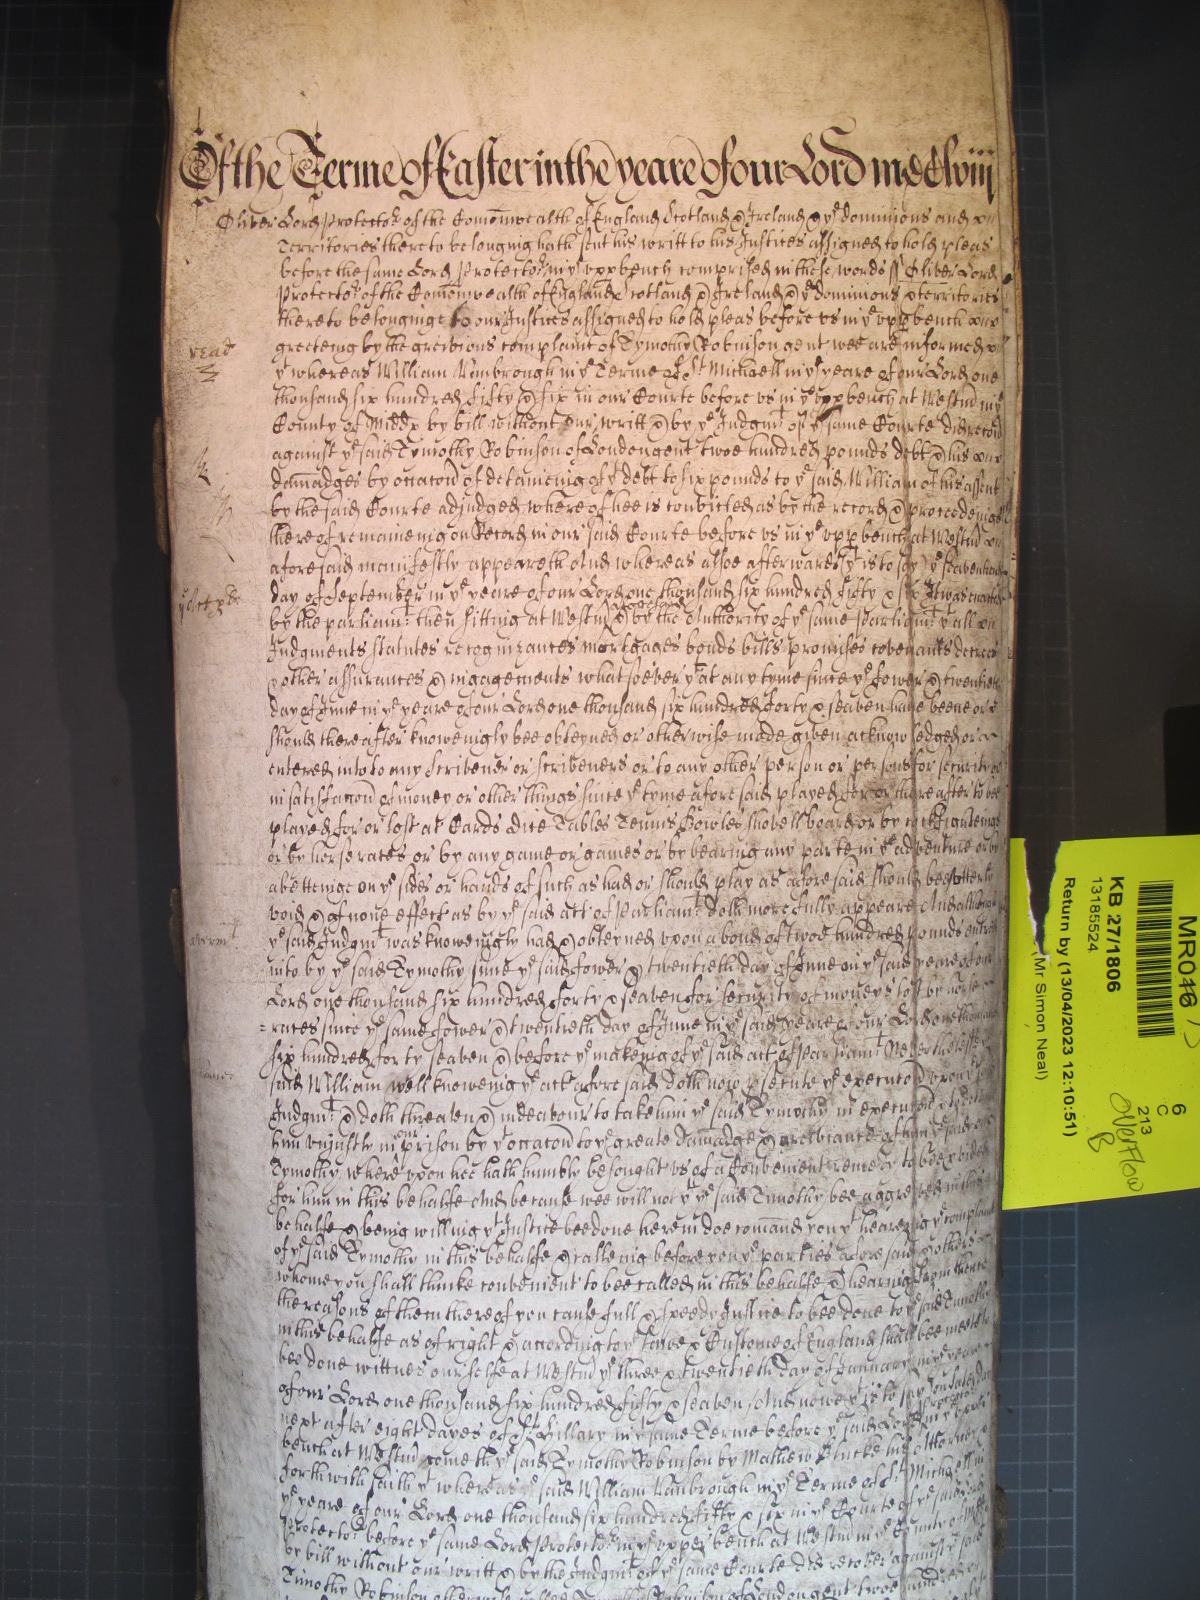 Of the Terme of Easter in the yeare of our Lord mdclviii
Oliver Lord Protector of the Comonwealth of England Scotland & Ireland & ye dominions and
Territories thereto belonging hath sent his writt to his Justices assigned to hold pleas
before the same Lord Protector in ye upp bench comprised in these words ss Oliver Lord
Protector of the Comonwealth of England Scotland & Ireland & ye dominions & territories
thereto belonginge to our Justices assigned to hold pleas before us in ye upp bench
greeteing by the greivious complaint of Tymothy Robinson gent wee are informed
yt whereas William in ye Terme of St Michaell in ye yeare of our Lord one
thousand six hundred fifty & six in our Courte before us in ye upp bench at Westm in ye
County of Middx by bill without our writt & by ye Judgmt of ye same Courte did recover
against ye said Tymothy Robinson of London gent twoe hundred pounds debt & his
damadges by occacon of deteineing of yt debt to six pounds to ye said William of his assent
by the said Courte adjudged whereof hee is convicted as by the record & proceedeings
thereof remaineing on Record in our said Courte before us in ye upp bench at Westm
aforesaid manifestly appeareth And whereas alsoe afterwards yt is to say ye seaventeenth
day of September in ye yeare of our Lord one thousand six hundred fifty & six It was enacted
by the parliamt then sitting at Westm & by the Authority of ye same Parliamt yt all
Judgments statutes recognizances mortgages bonds bills promises covenants decrees
& other assurances & ingagements whatsoever yt at any tyme since ye fower & twentieth
day of June in ye yeare of our Lord one thousand six hundred forty & seaven have beene or
should thereafter knoweingly bee obteyned or otherwise made given acknowledged or
entered into to any Scrivener or scriveners or to any other person or persons for security or
in satisfaccon of money or other things since ye tyme aforesaid played for or thereafter to bee
played for or lost at Cards Dice Tables Tennis Bowles shovell board or by cockfighteinge
or by horse races or by any game or games or by bearing any parte in ye adventure or by
abetteinge on ye sides or hands of such as had or should play as aforesaid should bee utterly
void & of none effect as by ye said act of Parliamt doth more fully appeare And although
ye said Judgmt was knoweingly had & obteyned upon a bond of twoe hundred pounds entred
into by ye said Tymothy since ye said fower & twentieth day of June in ye said yeare of our
Lord one thousand six hundred forty & seaven for security of moneys lost by horse
= races since ye same fower & twentieth day of June in ye said yeare of our Lord one thousand
six hundred forty seaven & before ye makeing of ye said act of Parliamt Neverthelesse ye
said William well knoweing ye act aforesaid doth now psecute ye execucon upon ye
Judgmt & doth threaten & indeavour to take him ye said Tymothy in execucon &
him unjustly in our prison by yt occacon to ye greate damadge & greivance of him ye said
Tymothy whereupon hee hath humbly besought us of a Convenient remedy to bee provided
for him in this behalfe And because wee will not yt ye said Timothy bee aggreived in this
behalfe & being willing yt Justice bee done herein doe comand you yt heareing ye complaint
of ye said Tymothy in this behalfe & calleing before you ye parties aforesaid & others
whome you shall thinke convenient to bee called in this behalfe & hearing from thence
the reasons of them thereof you cause full & speedy Justice to bee done to ye said Timothy
in this behalfe as of right & according to ye Lawe & Custome of England shall bee meete to
bee done wittnes ourselfe at Westm ye three & twentieth day of January in ye yeare
of our Lord one thousand six hundred fifty & seaven And nowe yt is to say on
next after eight dayes of St Hillary in ye same Terme before ye said Lord Protector in ye upper
bench at Westm come th ye said Tymothy Robinson by Mathew his Attorney &
forthwith saith yt whereas ye said William in ye Terme of St Michaell in
ye yeare of our Lord one thousand six hundred fifty & six in ye Courte of ye said Lord
Protector before ye same Lord Protector in ye upper bench at Westm in ye County of Middx
by bill without our writt & by the Judgmt of ye same Courte did recover against ye said
Timothy Robinson otherwise called Robinson of London gent twoe hundred
MR046
KB 27/1806
13185524
Return by (13/04/2023 12:10:51)
(Mr Simon Neal)
6
C
213
Overflow
B